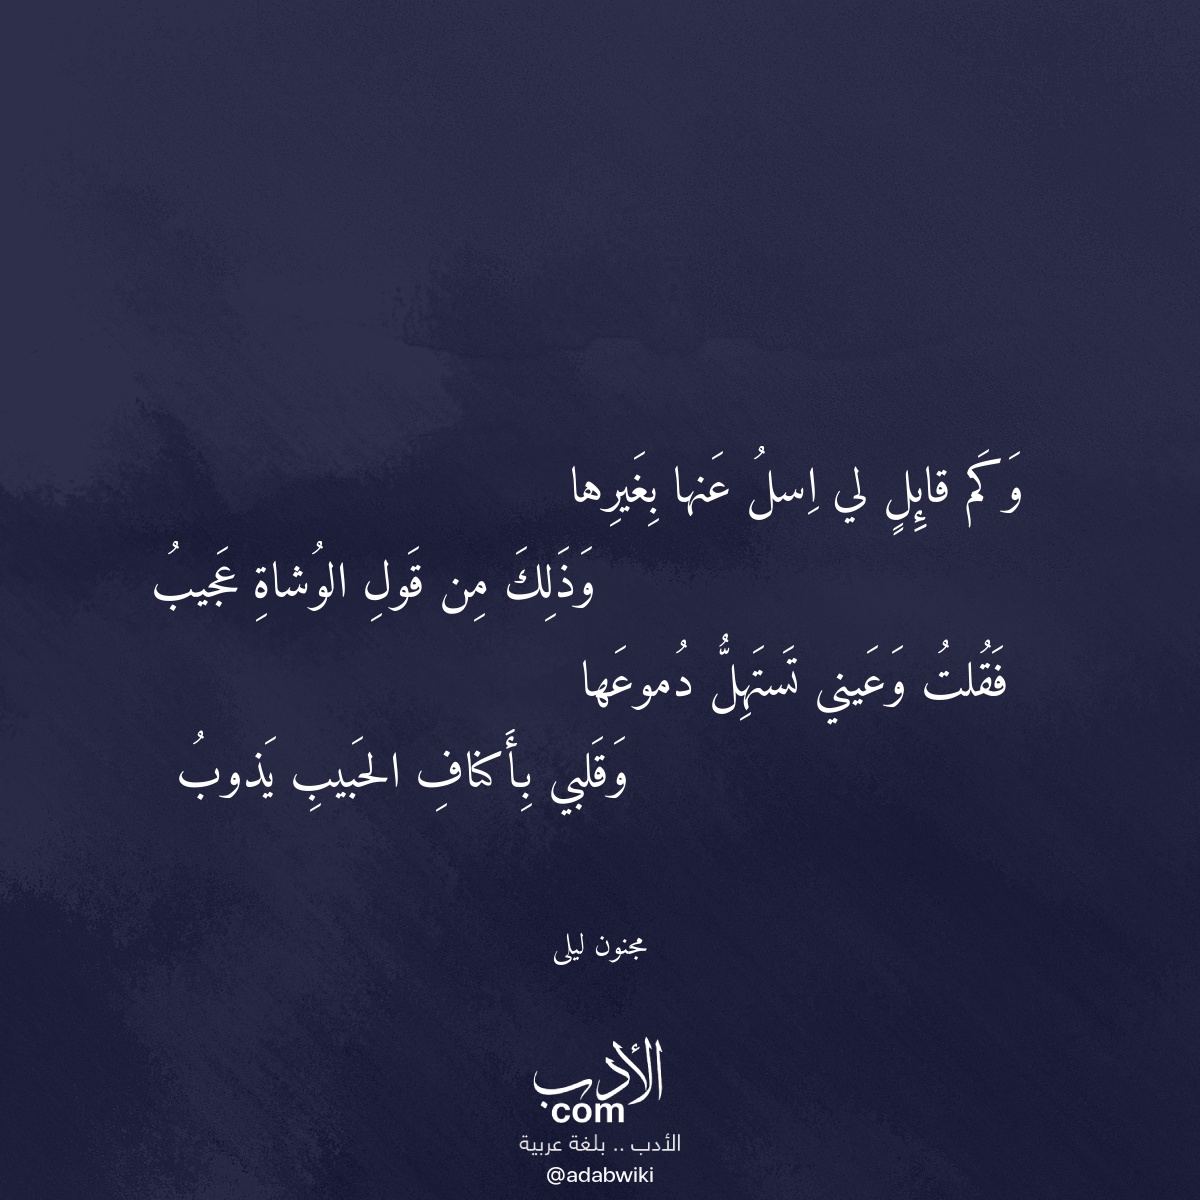 وَكَم قائِلٍ لي اِسلُ عَنها بِغَيرِها
وَذَلِكَ مِن قَولِ الوُشاةِ عَجيبُ
فَقُلتُ وَعَيني تَستَهِلُّ دُموعَها
وَقَلبي بِأَكنافِ الحَبيبِ يَذوبُ
مجنون ليلى
الأدب
com
الأدب .. بلغة عربية
@adabwiki